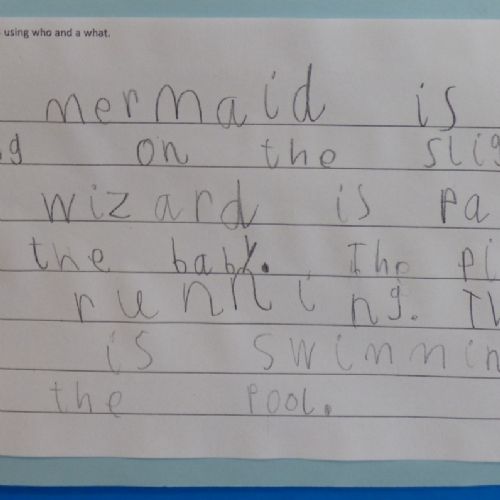 using who and a what.
mermaid is
on the slig
wizard is pa
the baby. The pi
running. Th
is swimmin
the pool.